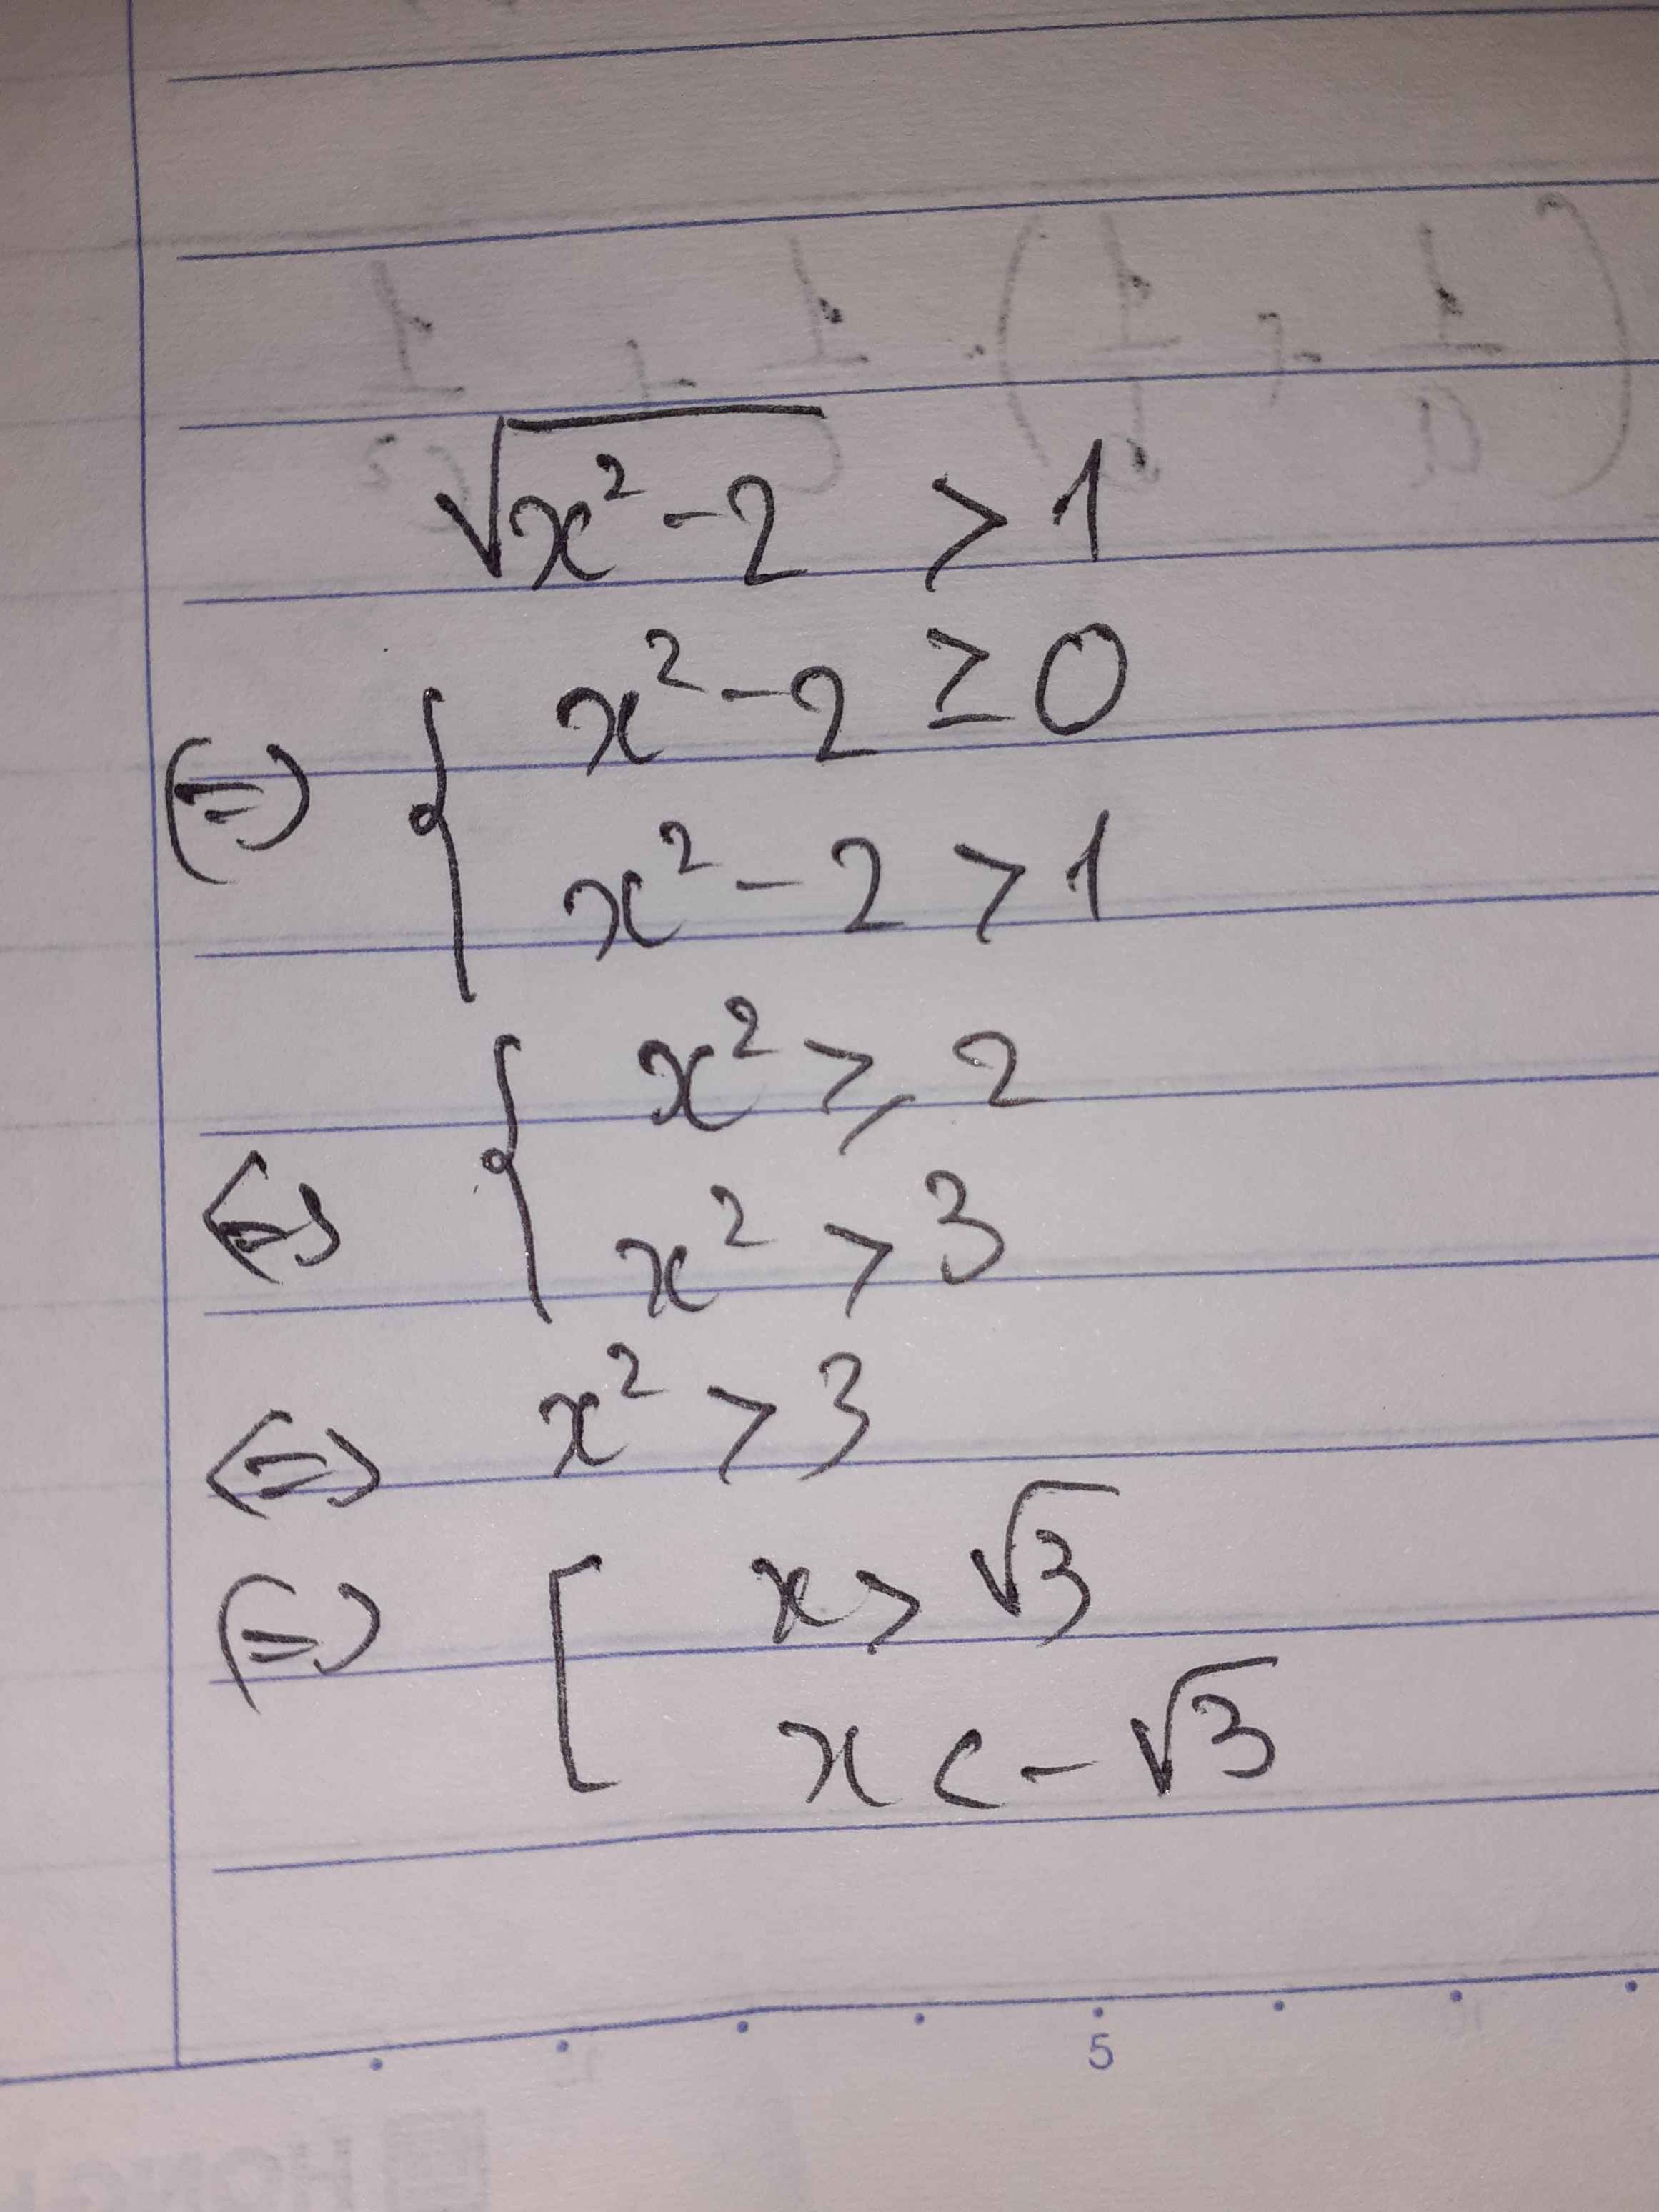 √(x² - 2) > 1
(=) { x² - 2 ≥ 0
x² - 2 > 1
<=> { x² ≥ 2
x² > 3
<=> x² > 3
(=) [ x > √3
x < -√3
5